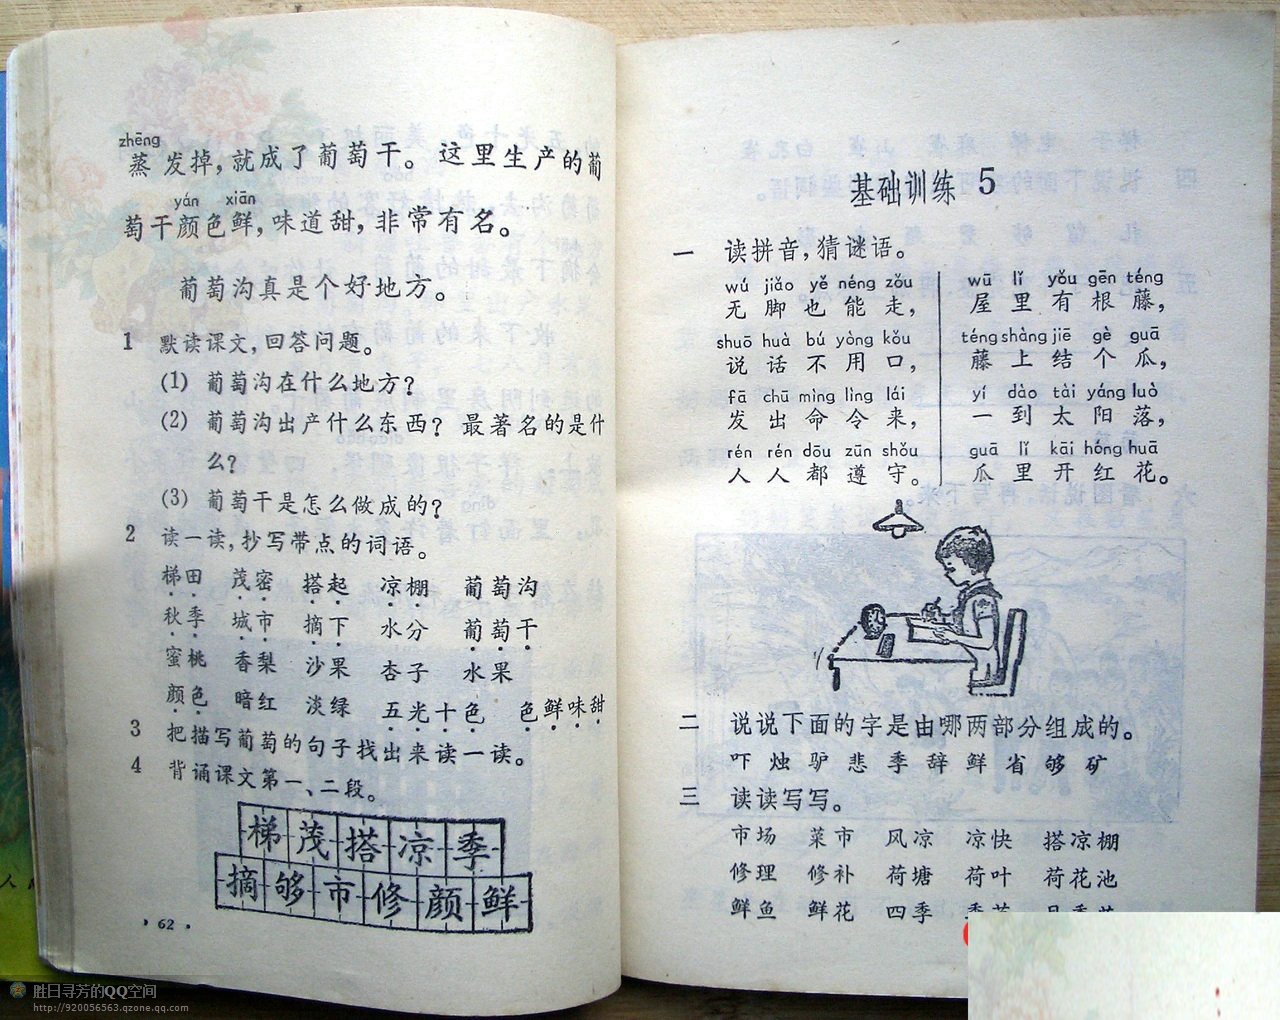 zhēng
蒸发掉，就成了葡萄干。这里生产的葡
yán xiān
萄干颜色鲜，味道甜，非常有名。
葡萄沟真是个好地方。
1 默读课文，回答问题。
(1) 葡萄沟在什么地方？
(2) 葡萄沟出产什么东西？最著名的是什
么？
(3) 葡萄干是怎么做成的？
2 读一读，抄写带点的词语。
梯田 茂密 搭起 凉棚 葡萄沟
秋季 城市 摘下 水分 葡萄干
蜜桃 香梨 沙果 杏子 水果
颜色 暗红 淡绿 五光十色 色鲜味甜
3 把描写葡萄的句子找出来读一读。
4 背诵课文第一、二段。
梯茂搭凉季
摘够市修颜鲜
· 62 ·
基础训练 5
一 读拼音，猜谜语。
wú jiǎo yě néng zǒu
无脚也能走，
shuō huà bú yòng kǒu
说话不用口，
fā chū mìng lìng lái
发出命令来，
rén rén dōu zūn shǒu
人人都遵守。
wū lǐ yǒu gēn téng
屋里有根藤，
téng shàng jiē gè guā
藤上结个瓜，
yí dào tài yáng luò
一到太阳落，
guā lǐ kāi hóng huā
瓜里开红花。
二 说说下面的字是由哪两部分组成的。
吓 烛 驴 悲 季 辞 鲜 省 够 矿
三 读读写写。
市场 菜市 风凉 凉快 搭凉棚
修理 修补 荷塘 荷叶 荷花池
鲜鱼 鲜花 四季
胜日寻芳的QQ空间
http://920056563.qzone.qq.com